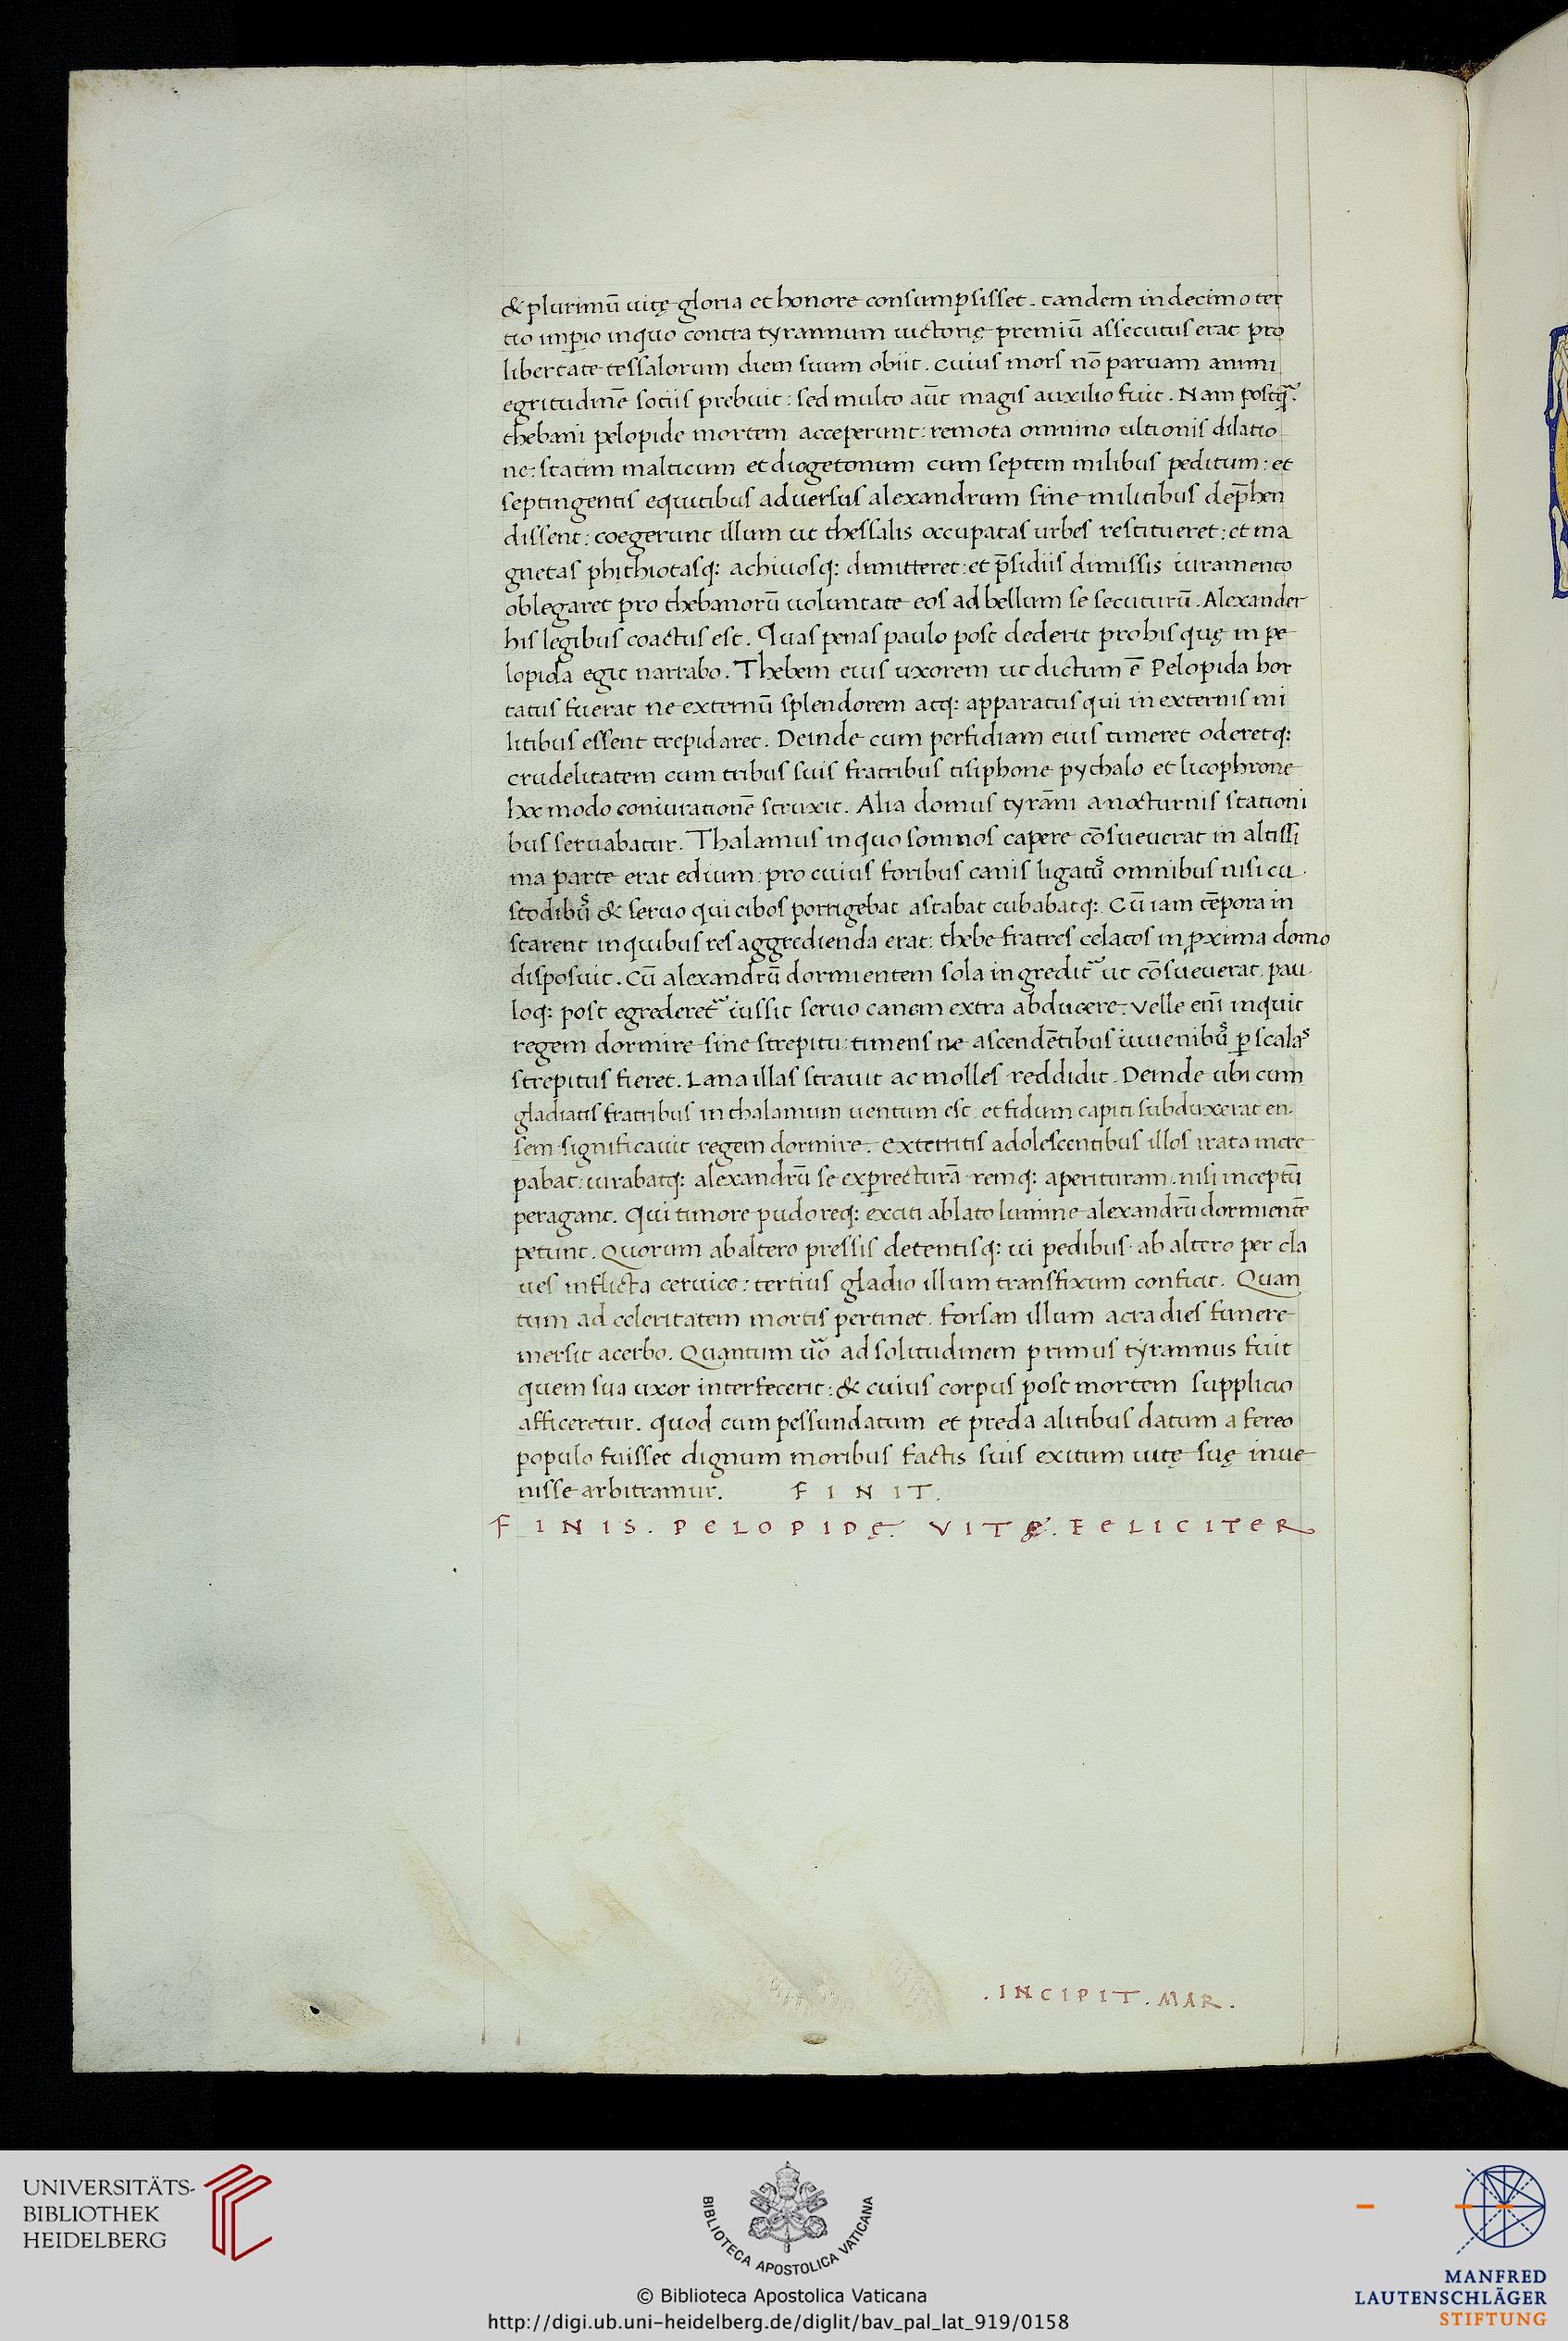 & plurimū uitę gloria et honore consumpsisset. tandem in decimo ter
tio imp̄io in quo contra tyrannum uictorię premiū assecutus erat pro
libertate tessalorum diem suum obiit. cuius mors nō paruam animi
egritudinē sociis prebuit: sed multo aūt magis auxilio fuit. Nam postq̃.
thebani pelopide mortem acceperunt: remota omnino ultionis dilatio
ne: statim malticum et diogetonum cum septem milibus peditum: et
septingentis equitibus aduersus alexandrum sine militibus dep̄hen
dissent: coegerunt illum ut thessalis occupatas urbes restitueret: et ma
gnetas phithiotasq: achiuosq: dimitteret: et p̄sidiis dimissis iuramento
oblegaret pro thebanorū uoluntate eos ad bellum se secuturū. Alexander
his legibus coactus est. Quas penas paulo post dederit pro his quę in pe
lopida egit narrabo. Thebem eius uxorem ut dictum ē Pelopida hor
tatus fuerat ne externū splendorem atq: apparatus qui in externis mi
litibus essent trepidaret. Deinde cum perfidiam eius timeret oderetq:
crudelitatem cum tribus suis fratribus tisiphone pythalo et licophrone
hoc modo coniurationē struxit. Alia domus tyrāni a nocturnis stationi
bus seruabatur. Thalamus in quo somnos capere cōsueuerat in altissi
ma parte erat edium: pro cuius foribus canis ligatus omnibus nisi cu
stodibus & seruo qui cibos porrigebat astabat cubabatq:. Cū iam tēpora in
starent in quibus res aggredienda erat: thebe fratres celatos in proxima domo
disposuit. Cū alexandrū dormientem sola ingredit̃ ut cōsueuerat. pau
loq: post egrederet̃ iussit seruo canem extra abducere. Velle eni̅ inquit
regem dormire sine strepitu: timens ne ascendētibus iuuenibus p̱ scalas
strepitus fieret. Lana illas strauit ac molles reddidit. Deinde ubi cum
gladiatis fratribus in thalamum uentum est. et fidum capiti subduxerat en
sem significauit regem dormire. Exterritis adolescentibus illos irata incre
pabat: iurabatq: alexandrū se exp̱recturā remq: aperituram. nisi inceptū
peragant. Qui timore pudoreq: exciti ablato lumine alexandrū dormientē
petunt. Quorum ab altero pressis detentisq: ui pedibus. ab altero per cla
ues inflicta ceruice: tertius gladio illum transfixum conficit. Quan
tum ad celeritatem mortis pertinet. forsan illum atra dies funere
mersit acerbo. Quantum u̅o ad solitudinem primus tyrannus fuit
quem sua uxor interfecerit: & cuius corpus post mortem supplicio
afficeretur. quod cum pessundatum et preda alitibus datum a fereo
populo fuisset dignum moribus factis suis exitum uitę suę inue
nisse arbitramur. FINIT.
FINIS. PELOPIDĘ. VITĘ. FELICITER
.INCIPIT. MAR.
UNIVERSITÄTS-
BIBLIOTHEK
HEIDELBERG
BIBLIOTECA APOSTOLICA VATICANA
© Biblioteca Apostolica Vaticana
http://digi.ub.uni-heidelberg.de/diglit/bav_pal_lat_919/0158
MANFRED
LAUTENSCHLÄGER
STIFTUNG